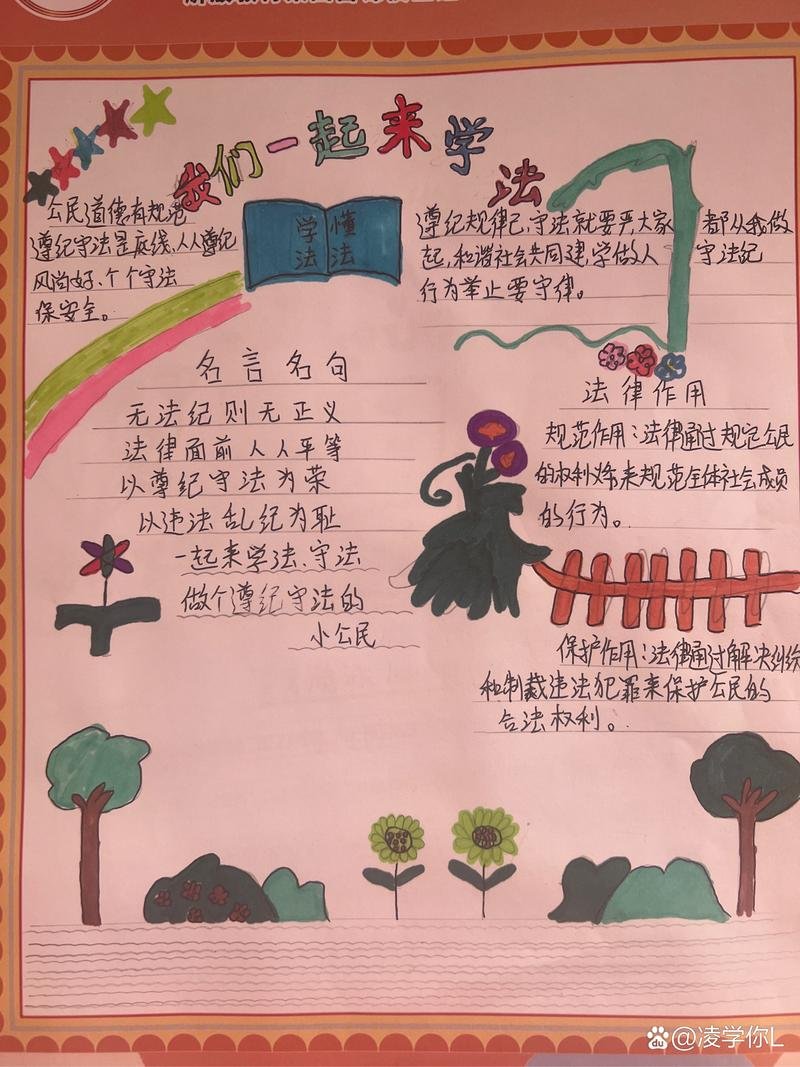 我们一起来学法
公民道德有规范
遵纪守法是底线,人人遵纪
风尚好、个个守法
保安全。
学法
懂法
遵纪规律己,守法就要严,大家
起,和谐社会共同建,学做人
行为举止要守律。
都从我做
守法纪
名言名句
无法纪则无正义
法律面前人人平等
以尊纪守法为荣
以违法乱纪为耻
一起来学法、守法
做个遵纪守法的
小公民
法律作用
规范作用:法律通过规定公民
的权利义务来规范全体社会成员
的行为。
保护作用:法律通过解决纠纷
和制裁违法犯罪来保护公民的
合法权利。
@凌学你L